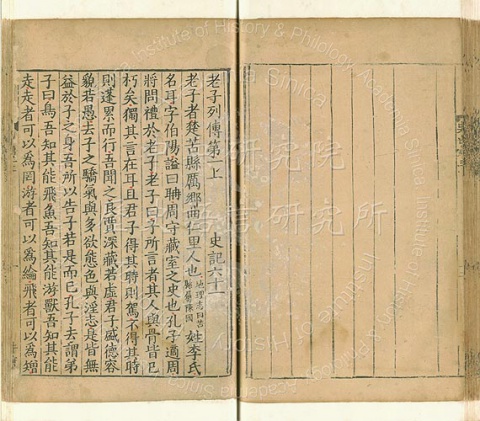 老子列傳第一上 史記六十一
老子者楚苦縣厲鄉曲仁里人也地理志曰苦縣屬陳國姓李氏
名耳字伯陽謚曰聃周守藏室之史也孔子適周
將問禮於老子老子曰子所言者其人與骨皆已
朽矣獨其言在耳且君子得其時則駕不得其時
則蓬累而行吾聞之良賈深藏若虛君子盛德容
貌若愚去子之驕氣與多欲態色與淫志是皆無
益於子之身吾所以告子若是而已孔子去謂弟
子曰鳥吾知其能飛魚吾知其能游獸吾知其能
走走者可以爲罔游者可以爲綸飛者可以爲矰
Institute of History & Philology, Academia Sinica